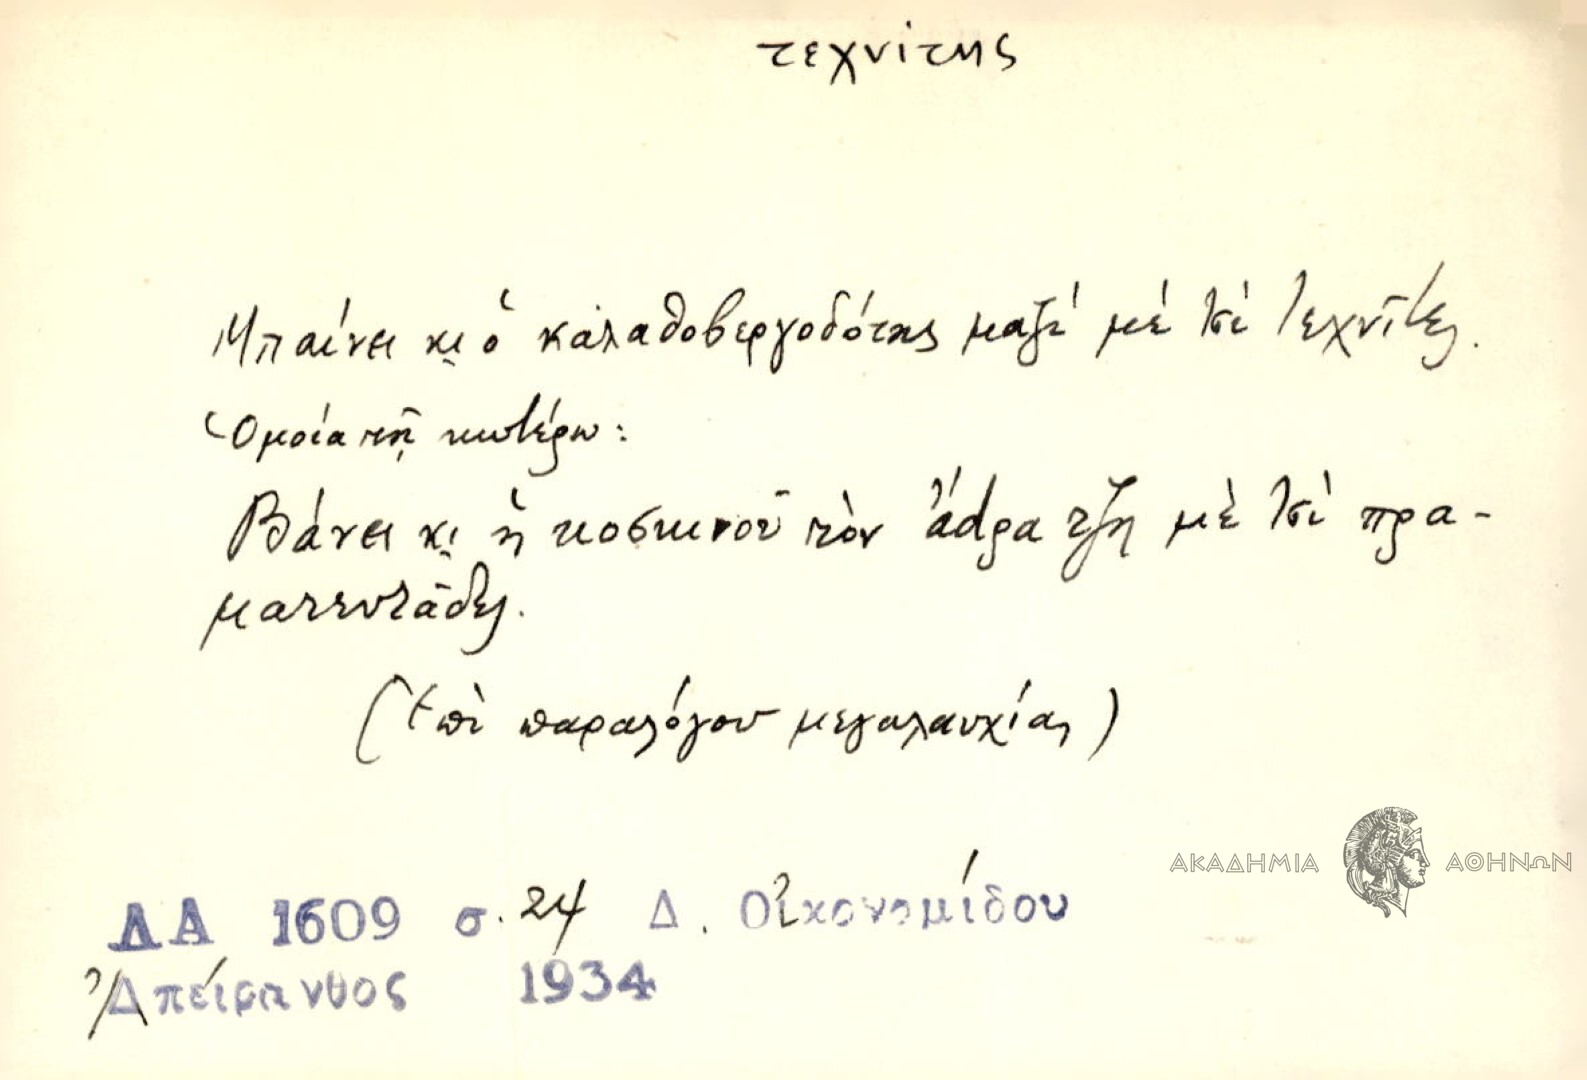 τεχνίτης
Μπαίνει κι ὁ καλαθοβεργοδότης μαζὶ μὲ τσὶ τεχνῖτες.
Ὁμοία τῇ κωτέρω:
Βάνει κι ἡ κοσκινοῦ τὸν ἄdρα τζη μὲ τσὶ πρα-
ματευτᾶδες.
(Ἐπὶ παραλόγου μεγαλαυχίας)
ΑΚΑΔΗΜΙΑ ΑΘΗΝΩΝ
ΛΑ 1609 σ. 24 Δ. Οἰκονομίδου
Ἀπείρανθος 1934